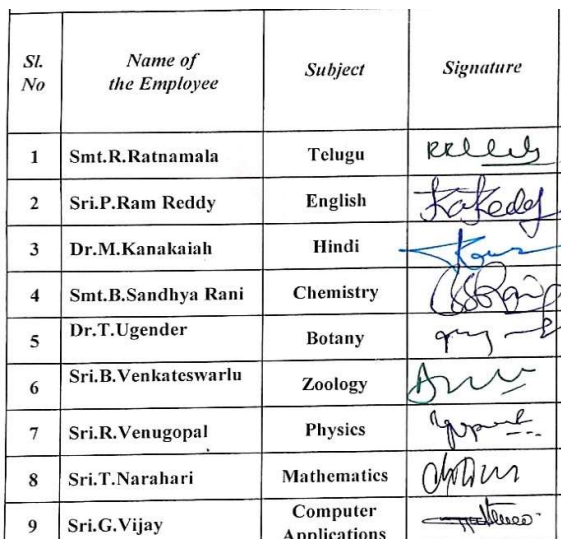 Sl. No | Name of the Employee | Subject | Signature
1 | Smt.R.Ratnamala | Telugu
2 | Sri.P.Ram Reddy | English
3 | Dr.M.Kanakaiah | Hindi
4 | Smt.B.Sandhya Rani | Chemistry
5 | Dr.T.Ugender | Botany
6 | Sri.B.Venkateswarlu | Zoology
7 | Sri.R.Venugopal | Physics
8 | Sri.T.Narahari | Mathematics
9 | Sri.G.Vijay | Computer Applications